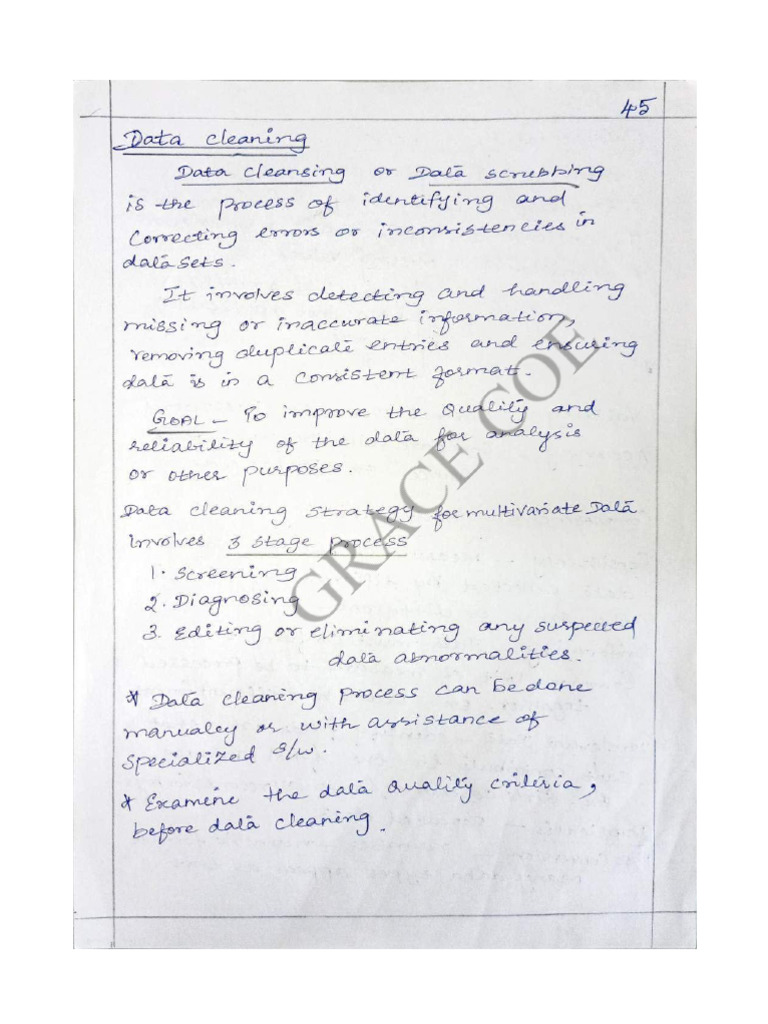 45
Data cleaning
Data cleansing or Data scrubbing
is the process of identifying and
correcting errors or inconsistencies in
data sets.
It involves detecting and handling
missing or inaccurate information,
removing duplicate entries and ensuring
data is in a consistent format.
GOAL - To improve the quality and
reliability of the data for analysis
or other purposes.
Data cleaning strategy for multivariate Data
involves 3 stage process
1. Screening
2. Diagnosing
3. Editing or eliminating any suspected
data abnormalities.
* Data cleaning process can be done
manualcy or with assistance of
specialized s/w.
* Examine the data quality criteria,
before data cleaning.
GRACE COE